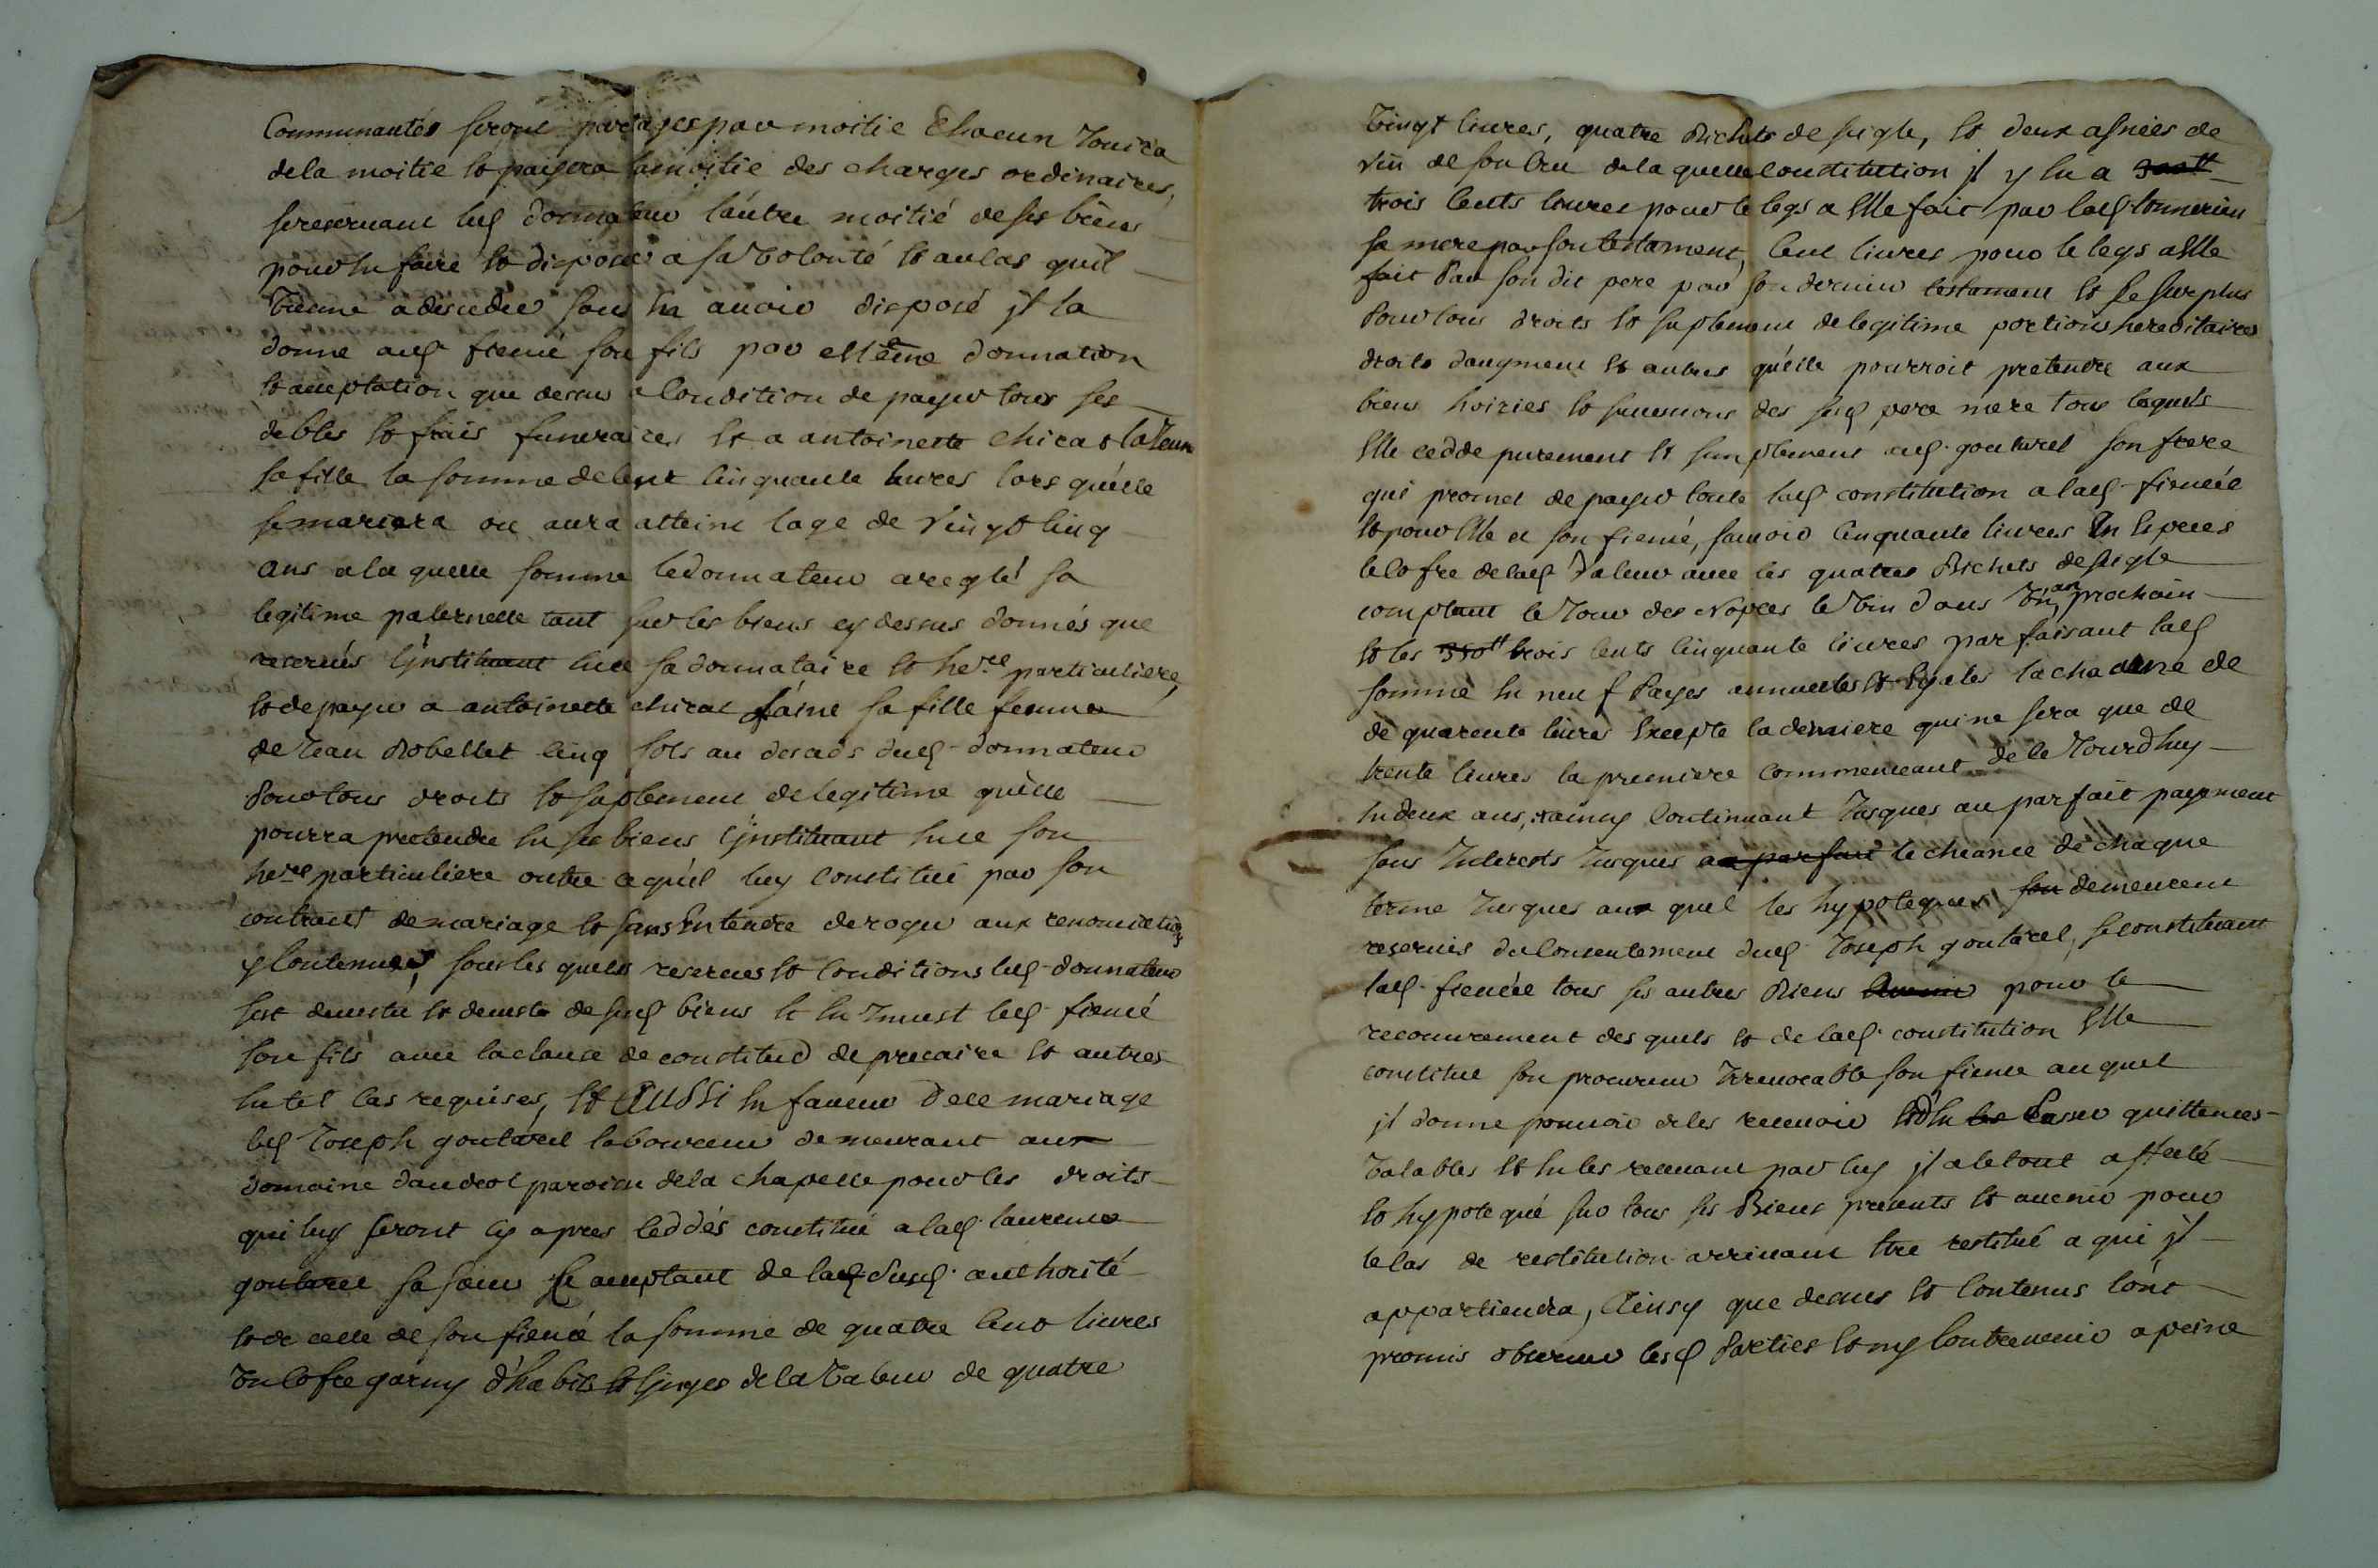 Communautés seront partagés par moitié Chacun Jouira
de la moitié et payera la moitié des charges ordinaires,
se reservant led donnateur l'autre moitié de ses biens
pour en faire et disposer a sa volonté et au cas quil
vienne a deceder sans en avoir disposé jl la
donne aud fiencé son fils par meme donnation
et acceptation que dessus a Condition de payer tous ses
debtes et frais funeraires et a antoinette chirat la Jeune
sa fille la somme de Cent Cinquante livres lors qu'elle
se mariera ou aura atteint l'age de vingt Cinq
ans a la quelle somme le donnateur a reglé sa
legitime paternelle tant sur les biens cy dessus donnés que
reservés L'jnstituant en ce sa donnataire et here particuliere,
et de payer a antoinette chirat l'áiné sa fille femme
de Jean Robellet Cinq sols au deceds dud donnateur
Pour tous droits et suplement de legitime qu'elle
pourra pretendre en ses biens L'jnstituant en ce son
here particuliere outre ce qu'il luy Constitué par son
contract de mariage et sans Entendre deroger aux renonciations
y Contenues, sous les quels reserves et Conditions led donnateur
s'est demetu et deveste de sesd biens et en Jnvest led fiencé
son fils avec la clause de constitud de precaire et autres
en tel Cas requises, Et AUSSi en faveur de ce mariage
led Joseph goutarel laboureur demeurant aux
domaine daudrol paroisse de la chapelle pour les droits
qui luy seront cy apres Ceddés constitué a lad laurence
goutarel sa soeur Et acceptant de lad dusd authorité
et de celle de son fiencé la somme de quatre Cent livres
Un Cofre garny d'habits et Linges de la Valeur de quatre
Vingt livres, quatre Bichets de seigle, et deux asnées de
vin de son Cru de la quelle Constitution jl y En a 300tt
trois Cents livres pour le legs a Elle fait par lad
sa mere par son testament, Cent livres pour le legs a Elle
fait Par son dit pere par son dernier testament et Le surplus
Pour tous droits et suplement de legitime portions hereditaires
droits daugment et autres qu'elle pourroit pretendre aux
biens hoiries et successions des sesd pere mere tous lesquels
Elle cedde purement et simplement aud goutarel son frere
qui promet de payer toute lad constitution a lad fiencée
et pour Elle a son fiencé, savoir Cinquante livres En Especes
le Cofre de lad Valeur avec les quatres Bichets de seigle
comptant le Jour des Nopces le Vin dans Un an prochain
et les 350tt trois Cents Cinquante livres parfaisant lad
somme En neuf Payes annuelles et Egales la chacune de
de quarente livres Excepte la derniere qui ne sera que de
trente livres la premiere Commenceant de Ce Jourdhuy
En deux ans, et ainsy Continuant Jusques au parfait payement
sans Jnterests Jusques au parfait l'echeance de chaque
terme Jusques aux quel les hypoteques son demeurent
reservés du Consentement dud Joseph goutarel, se constituant
lad fiencée tous ses autres Biens Avenir pour le
recouvrement des quels et de lad constitution Elle
constitue son procureur Jrrevocable son fience auquel
jl donne pouvoir de les recevoir et d'En les Passer quittences
Valables et En les recevant par luy jl a le tout affecté
et hypotequé sur tous ses Biens presents et avenir pour
le Cas de restitution arrivant Etre restitué a qui jl
appartiendra, Ainsy que dessus et Contenus l'ont
promis observer lesd Parties et ny Contrevenir a peine